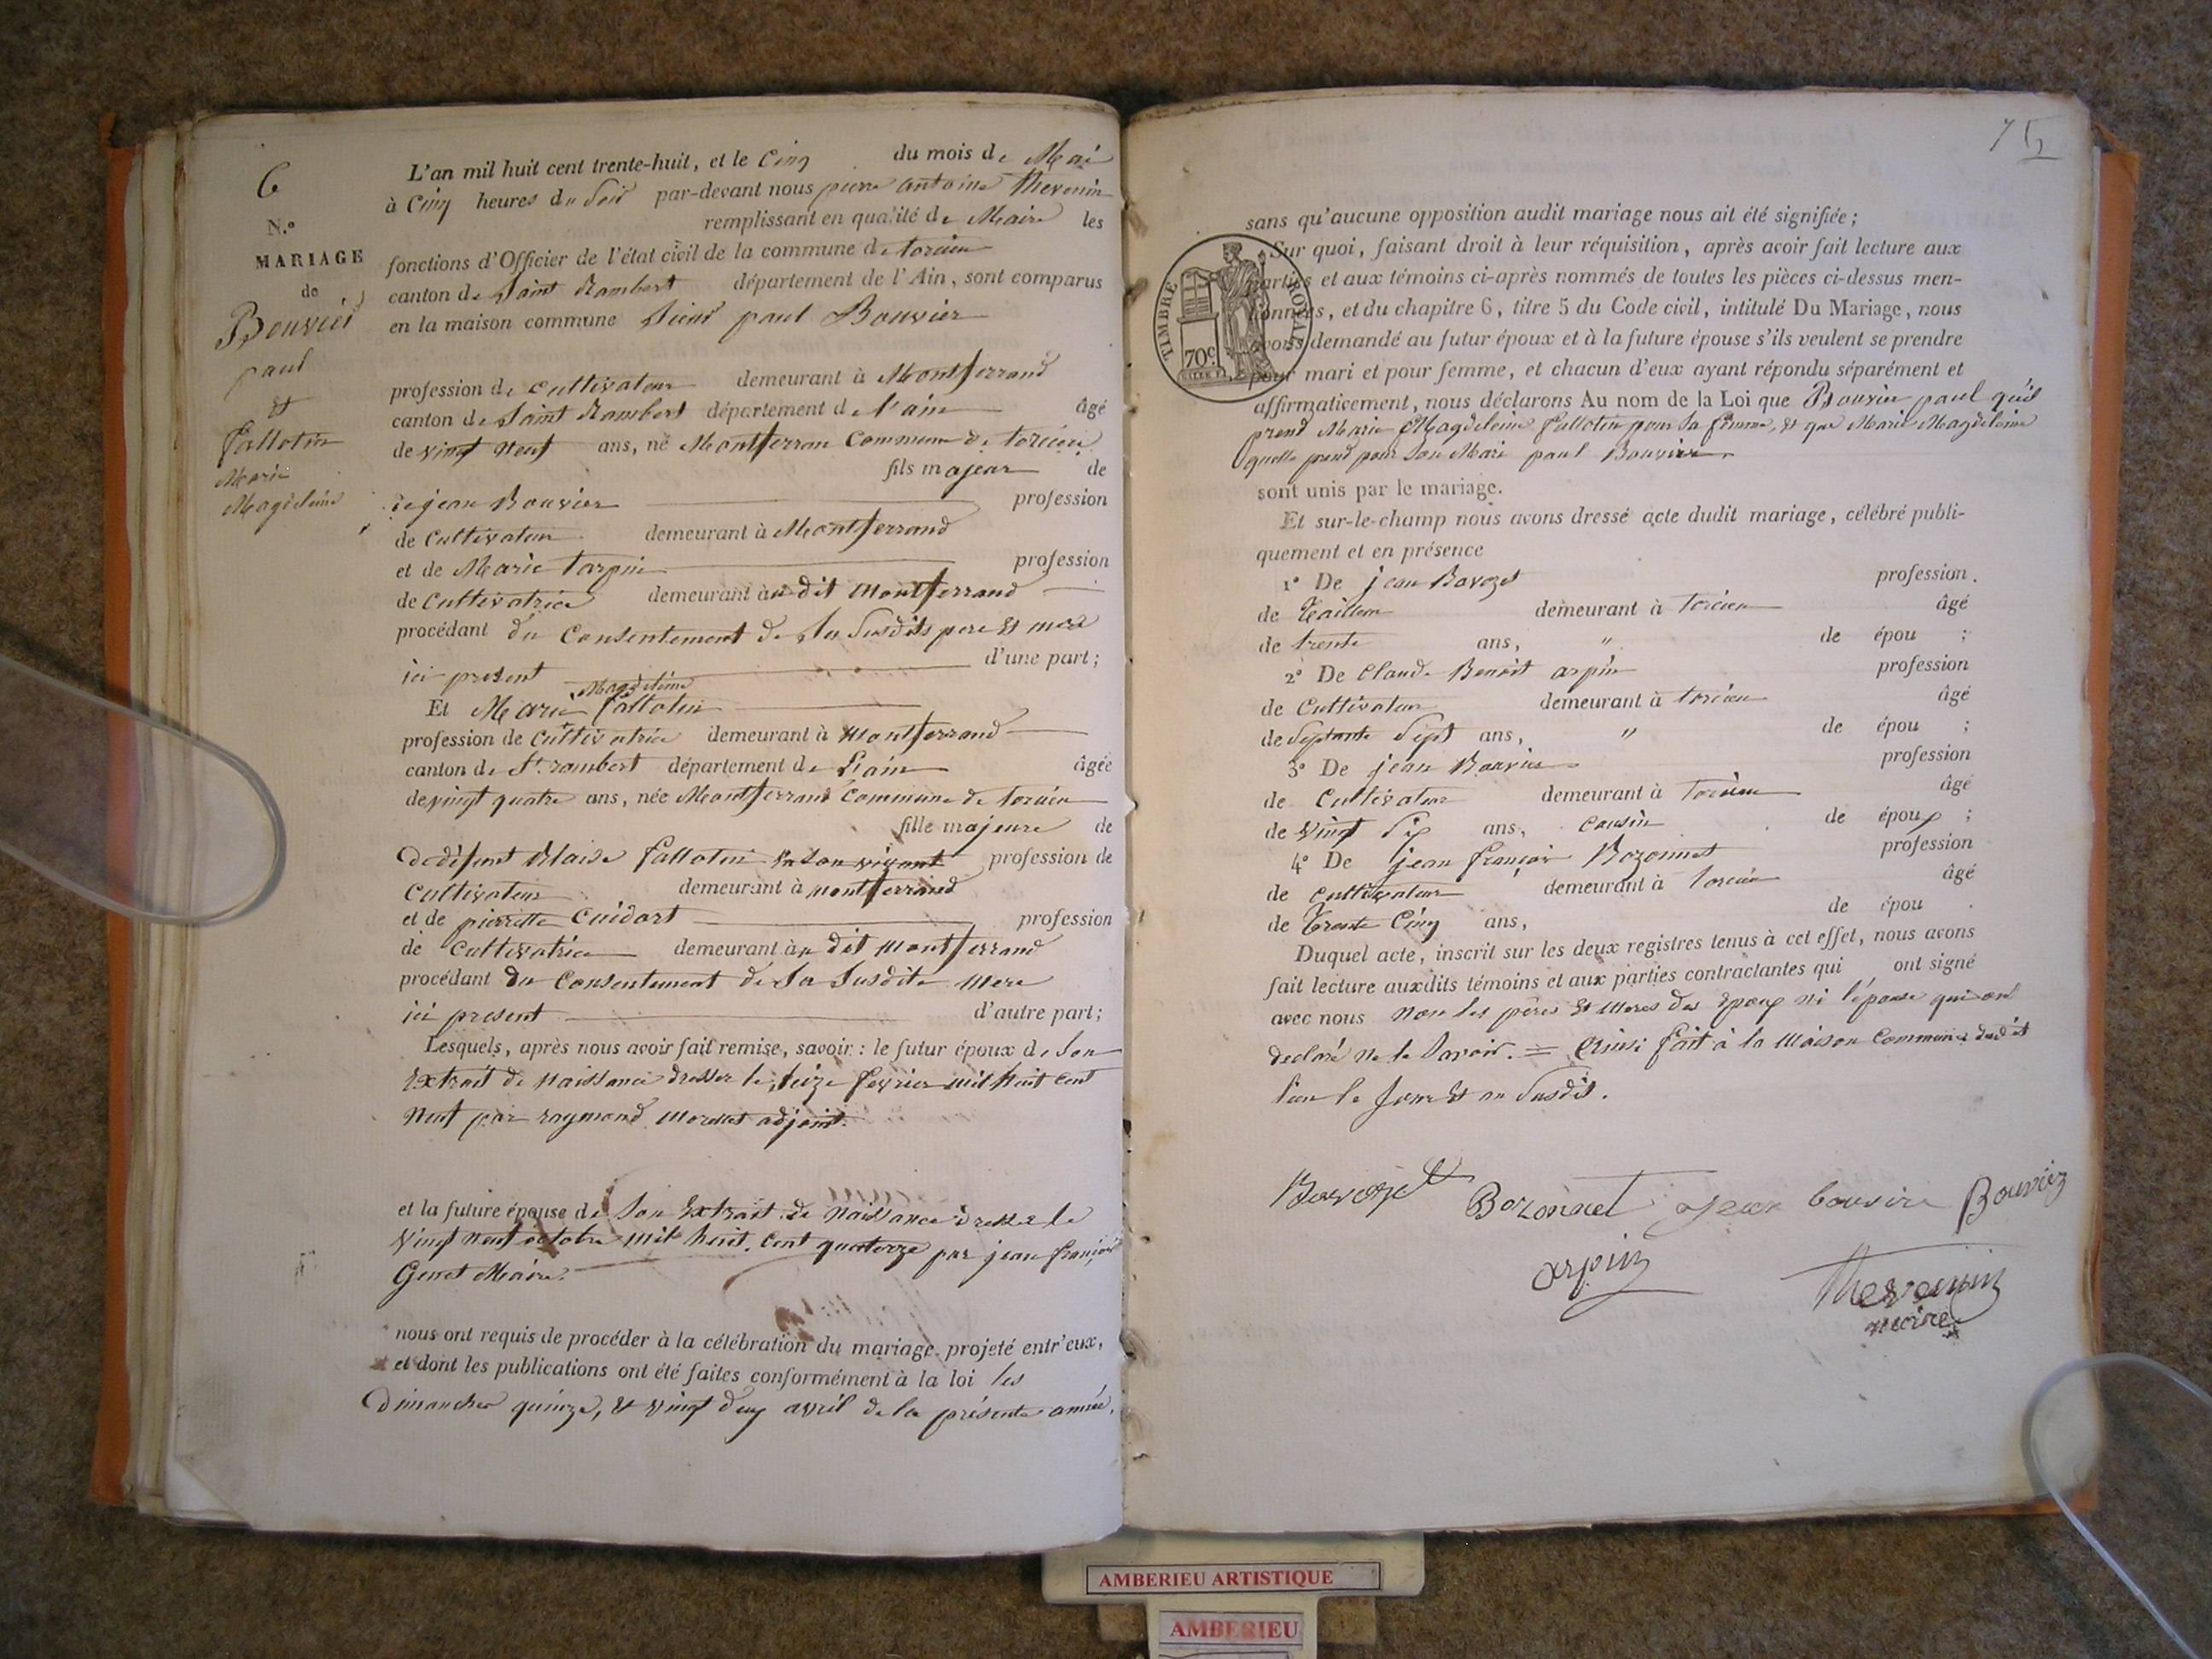 6
N.º
MARIAGE
de
Bouvier
paul
&
fallotin
Marie
Magdeleine
L'an mil huit cent trente-huit, et le Cinq du mois de Mai
à Cinq heures du Soir par-devant nous pierre antoine Thevenin
remplissant en qualité de Maire les
fonctions d'Officier de l'état civil de la commune de torcieu
canton de Saint Rambert département de l'Ain, sont comparus
en la maison commune Sieur paul Bouvier
profession de cultivateur demeurant à Montferrand
canton de Saint Rambert département de l'ain âgé
de vingt neuf ans, né Montferran Commune de torcieu
fils majeur de
de jean Bouvier profession
de Cultivateur demeurant à Montferrand
et de Marie tarpin profession
de Cultivatrice demeurant au dit Montferrand
procédant du Consentement de Ses Susdits pere & mere
ici present d'une part;
Magdeleine
Et Marie fallotin
profession de Cultivatrice demeurant à Montferrand
canton de St. rambert département de L'ain âgée
de vingt quatre ans, née Montferrand Commune de torcieu
fille majeure de
de défunt Blaise fallotin En Son vivant profession de
Cultivateur demeurant à montferrand
et de pierrette Cuidart profession
de Cultivatrice demeurant au dit Montferrand
procédant du Consentement de Sa Susdite Mere
ici present d'autre part;
Lesquels, après nous avoir fait remise, savoir : le futur époux de Son
Extrait de Naissance dresser le Seize fevrier mil huit cent
Neuf par raymond Morellet adjoint.
et la future épouse de Son Extrait de Naissance dresser le
Vingt neuf octobre mil huit Cent quatorze par jean françois
Genet Maire.
nous ont requis de procéder à la célébration du mariage projeté entr'eux,
et dont les publications ont été faites conformément à la loi les
dimanches quinze, & vingt deux avril de la présente année.
75
sans qu'aucune opposition audit mariage nous ait été signifiée;
TIMBRE ROYAL
70 c.
Sur quoi, faisant droit à leur réquisition, après avoir fait lecture aux
parties et aux témoins ci-après nommés de toutes les pièces ci-dessus men-
tionnées, et du chapitre 6, titre 5 du Code civil, intitulé Du Mariage, nous
avons demandé au futur époux et à la future épouse s'ils veulent se prendre
pour mari et pour femme, et chacun d'eux ayant répondu séparément et
affirmativement, nous déclarons Au nom de la Loi que Bouvier paul qu'il
prend Marie Magdeleine fallotin pour Sa femme, & que Marie Magdeleine
quelle prend pour Son Mari paul Bouvier.
sont unis par le mariage.
Et sur-le-champ nous avons dressé acte dudit mariage, célébré publi-
quement et en présence
1º De jean Bavozet profession
de tailleur demeurant à torcieu âgé
de trente ans, " de épou ;
2º De Claude Benoit arpin profession
de Cultivateur demeurant à torcieu âgé
de Septante Sept ans, " de épou ;
3º De jean Bouvier profession
de Cultivateur demeurant à torcieu âgé
de vingt Six ans, cousin de époux ;
4º De jean françois Bozonnet profession
de cultivateur demeurant à torcieu âgé
de Trente Cinq ans, de épou .
Duquel acte, inscrit sur les deux registres tenus à cet effet, nous avons
fait lecture auxdits témoins et aux parties contractantes qui ont signé
avec nous Non les pères & Meres des Epoux ni l'épouse qui ont
declaré ne le Savoir. = Ainsi fait à la Maison Commune dudit
lieu le Jour & an Susdit.
Bavozet Bozonnet Jean bouvier Bouvier
arpin
Thevenin
maire
AMBERIEU ARTISTIQUE
AMBERIEU